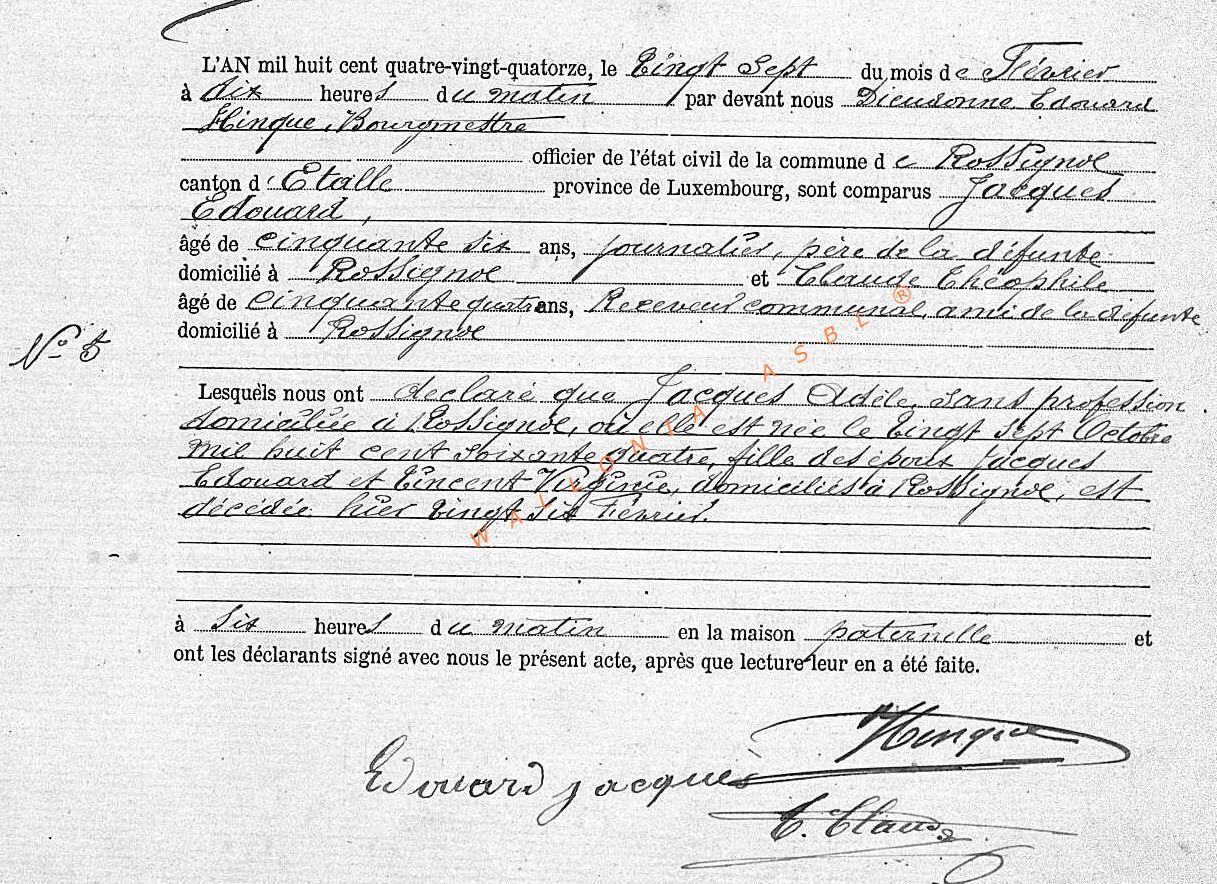 L'AN mil huit cent quatre-vingt-quatorze, le Vingt Sept du mois de Février
à dix heures du matin par devant nous Dieudonné Edouard
Hinque, Bourgmestre
officier de l'état civil de la commune de Rossignol
canton d'Etalle province de Luxembourg, sont comparus Jacques
Edouard,
âgé de cinquante six ans, journalier, père de la défunte
domicilié à Rossignol et Claude Théophile
âgé de cinquante quatre ans, Receveur communal, ami de la défunte
domicilié à Rossignol
N° 5
Lesquels nous ont déclaré que Jacques Adèle, sans profession
domiciliée à Rossignol, où elle est née le Vingt Sept Octobre
mil huit cent soixante quatre, fille des époux Jacques
Edouard et Vincent Virginie, domiciliés à Rossignol, est
décédée hier Vingt Six Février.
à Six heures du matin en la maison paternelle et
ont les déclarants signé avec nous le présent acte, après que lecture leur en a été faite.
Hinque
Edouard jacques
T. Claude
WALLONIA ASBL ®